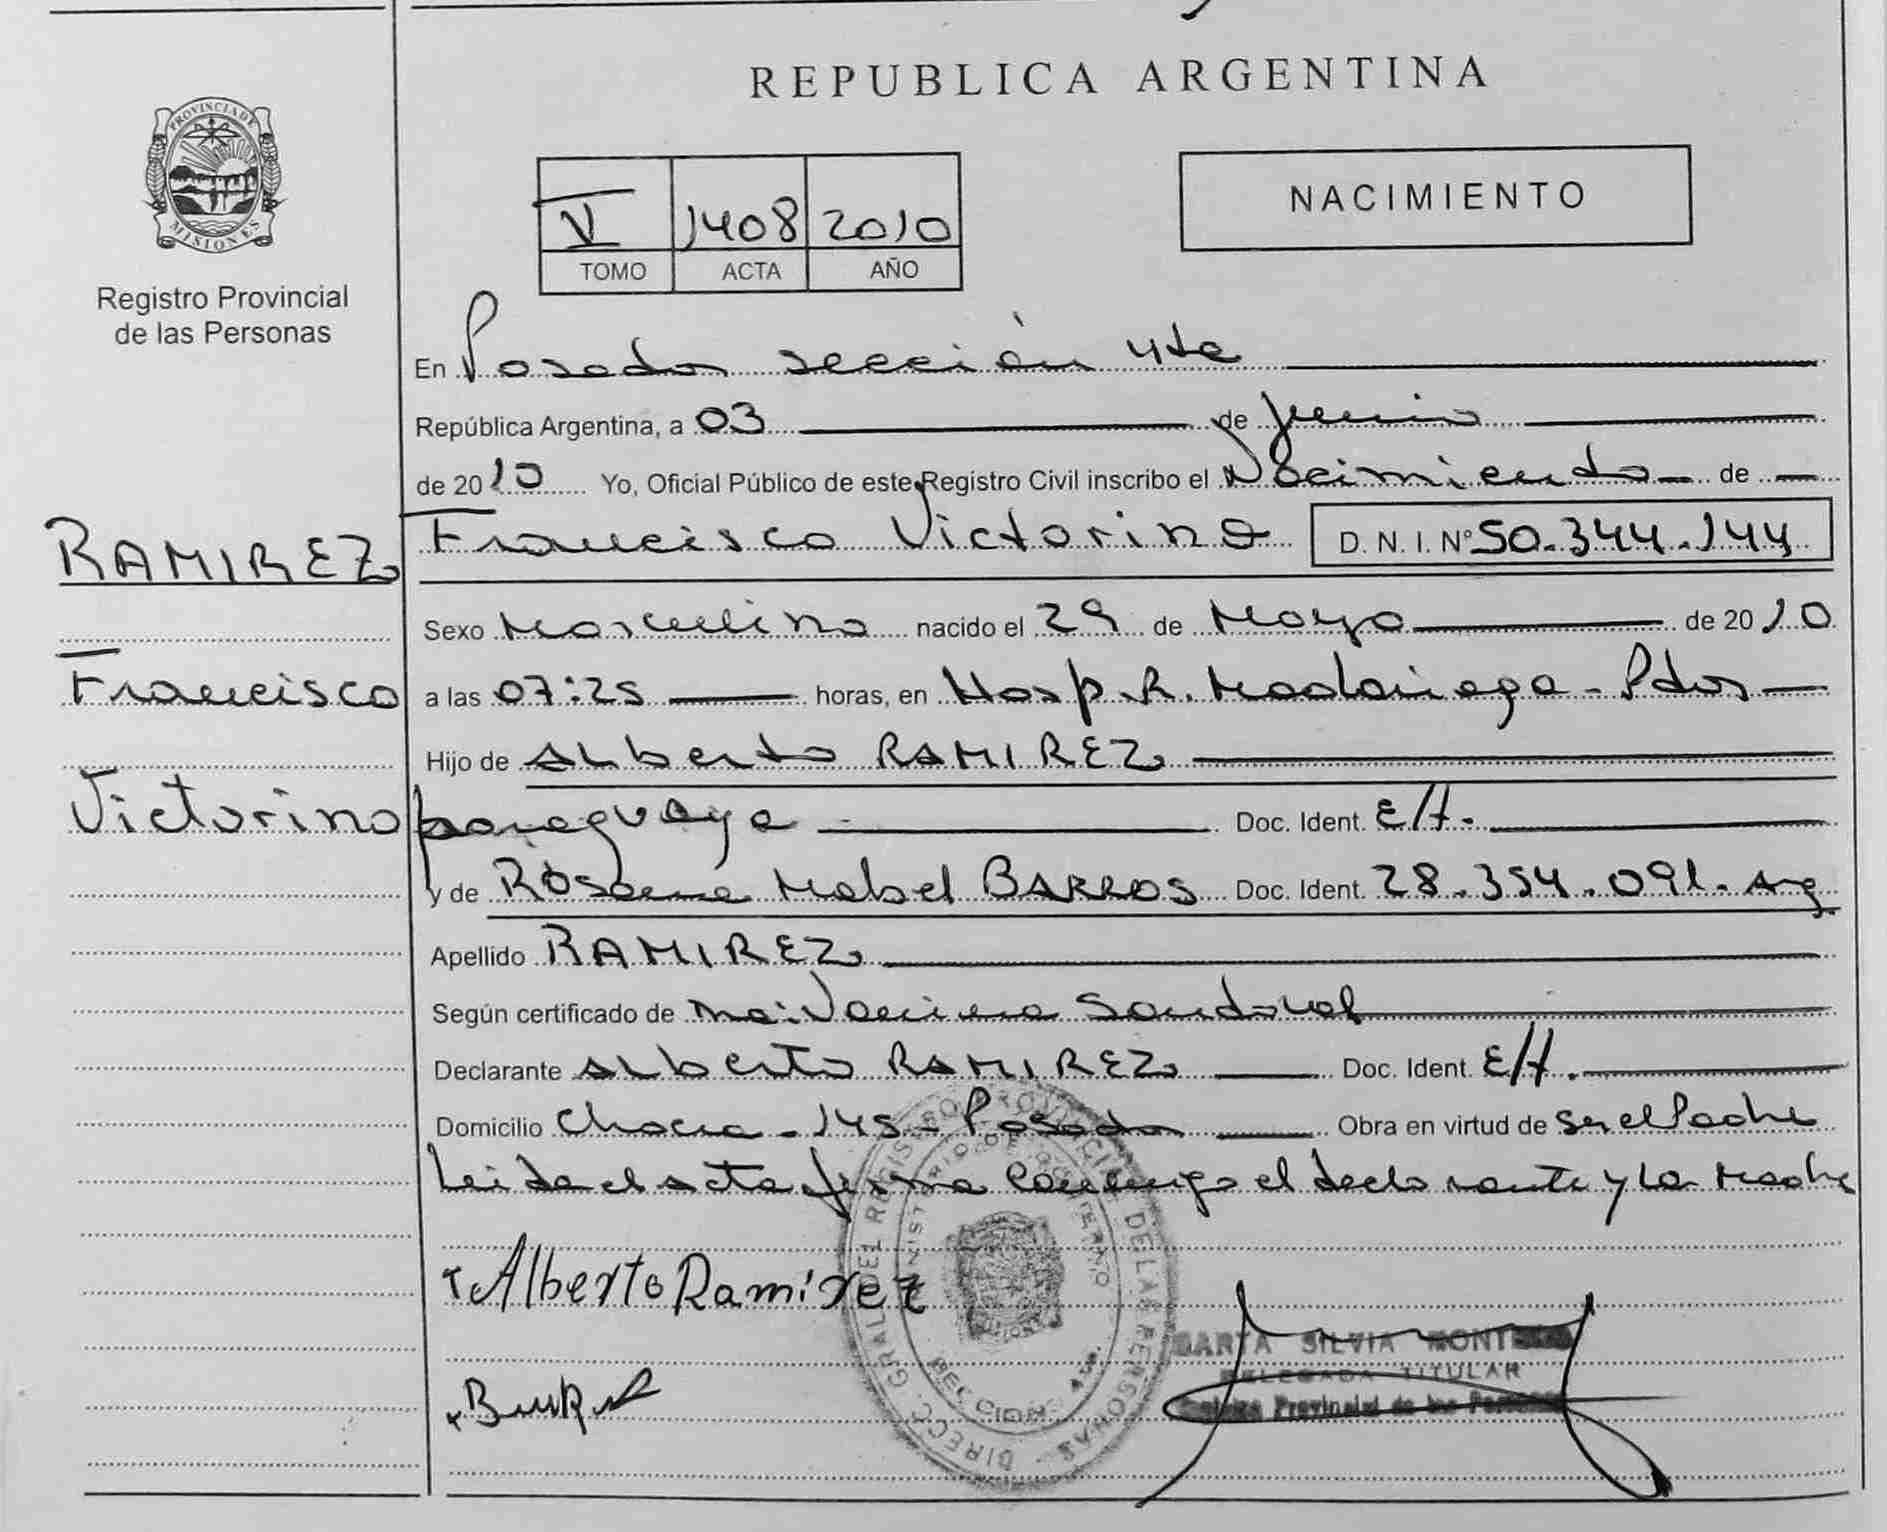 REPUBLICA ARGENTINA
PROVINCIA DE
MISIONES
Registro Provincial
de las Personas
V 1408 2010
TOMO ACTA AÑO
NACIMIENTO
En Posadas sección 4ta
República Argentina, a 03 de junio
de 2010 Yo, Oficial Público de este Registro Civil inscribo el Nacimiento de
RAMIREZ
Francisco
Victorino
Francisco Victorino D. N. I. Nº 50.344.144
Sexo Masculino nacido el 29 de Mayo de 2010
a las 07:25 horas, en Hosp. R. Madariaga - Pdas
Hijo de Alberto RAMIREZ
paraguaya Doc. Ident. E/t.
y de Rosana Mabel BARROS Doc. Ident. 28.354.091. Arg
Apellido RAMIREZ
Según certificado de Sandoval
Declarante Alberto RAMIREZ Doc. Ident. E/t.
Domicilio Chacra - 145 - Posadas Obra en virtud de Ser el Padre
Leida el acta firma conmigo el declarante y la Madre
Alberto Ramirez
DIRECC. GRAL. DEL REGISTRO PROVINCIAL DE LAS PERSONAS
MINISTERIO DE GOBIERNO
SILVIA
DELEGADA TITULAR
Registro Provincial de las Personas